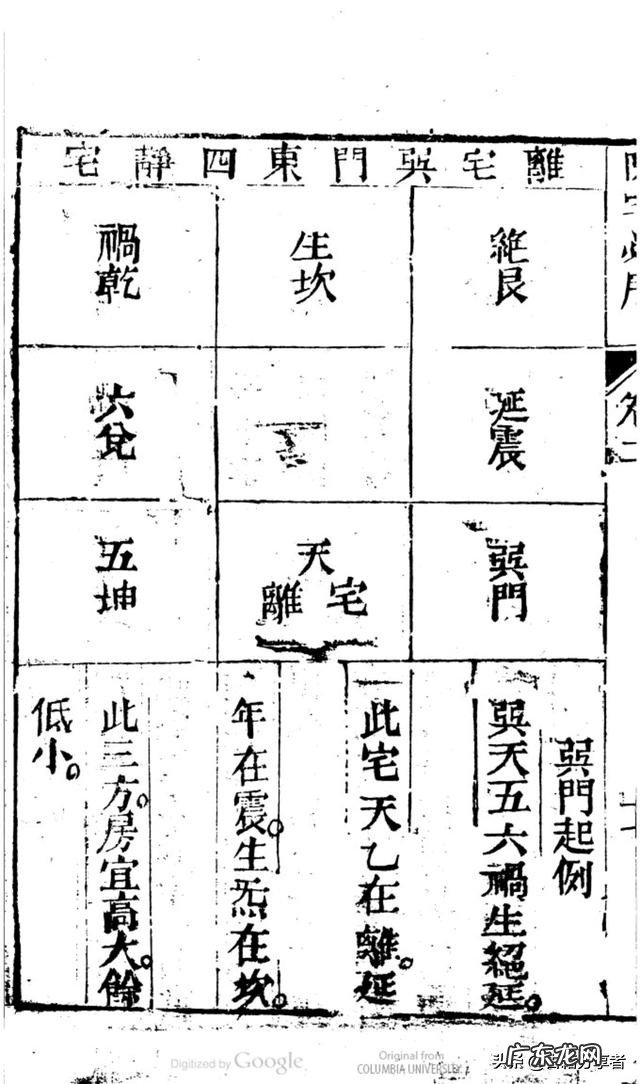 離宅巽門東四靜宅
絕艮
生坎
禍乾
延震
六兌
巽門
天
離宅
五坤
巽門起例
巽天五六禍生絕延。
此宅天乙在離。延
年在震。生炁在坎。
此三方。房宜高大。餘
低小。
Digitized by Google
Original from
COLUMBIA UNIVERSITY
头条
享者
广东龙网